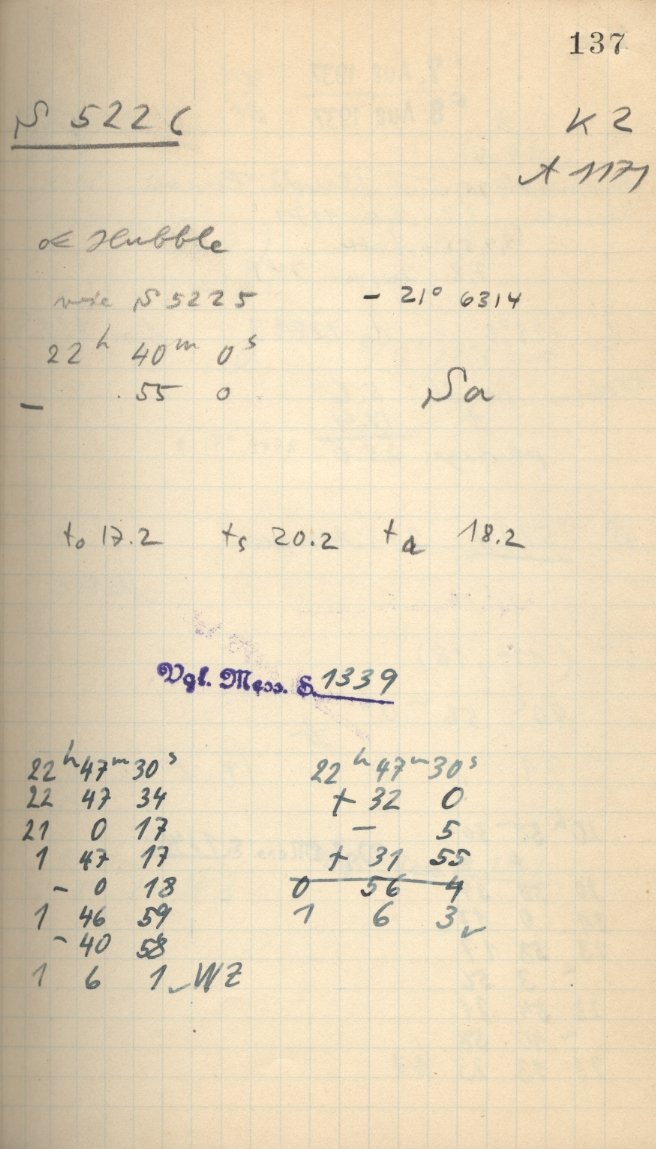 137
S 5226
K 2
A 1171
Hubble
wie S 5225 - 21° 6314
22h 40m 0s
- 55 0
Sa
t₀ 17.2 ts 20.2 ta 18.2
Vgl. Mess. S. 1339
22h 47m 30s
22 47 34
21 0 17
1 47 17
- 0 18
1 46 59
- 40 58
1 6 1 WZ
22h 47m 30s
+ 32 0
- 5
+ 31 55
0 56 4
1 6 3